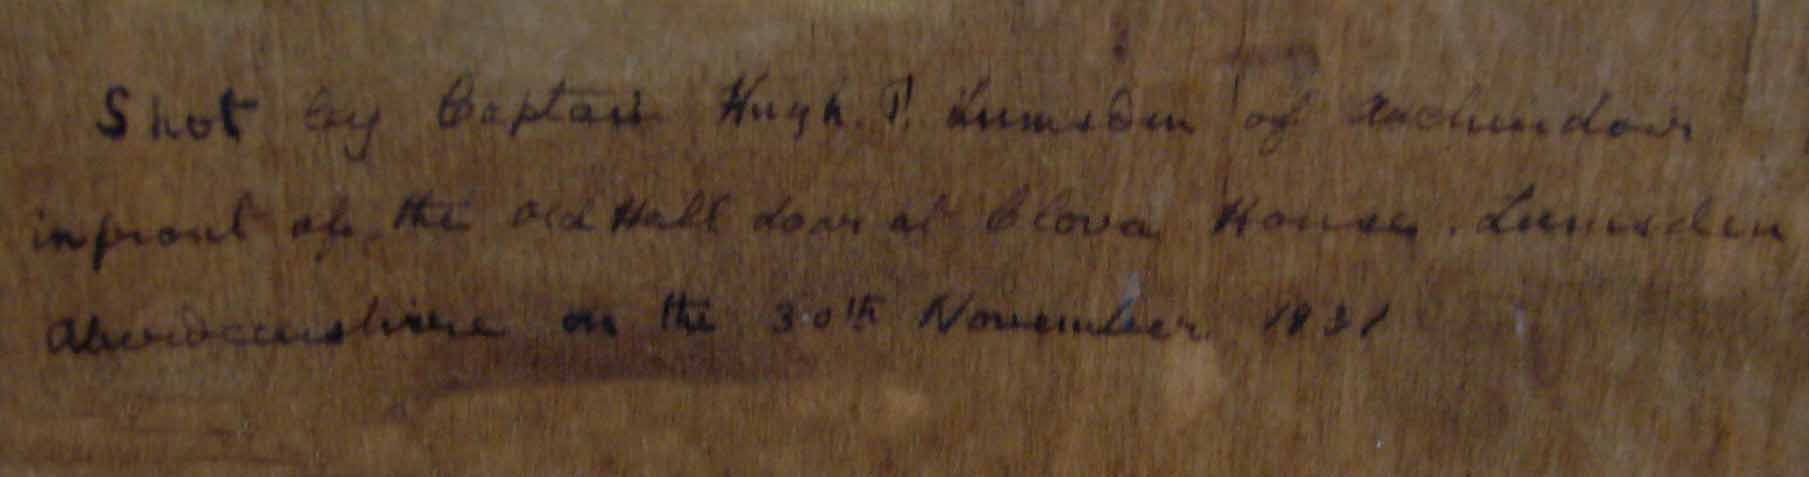 Shot by Captain Hugh P. Lumsden of Auchindoir
infront of the old Hall door at Clova House, Lumsden
Aberdeenshire on the 30th November 1831